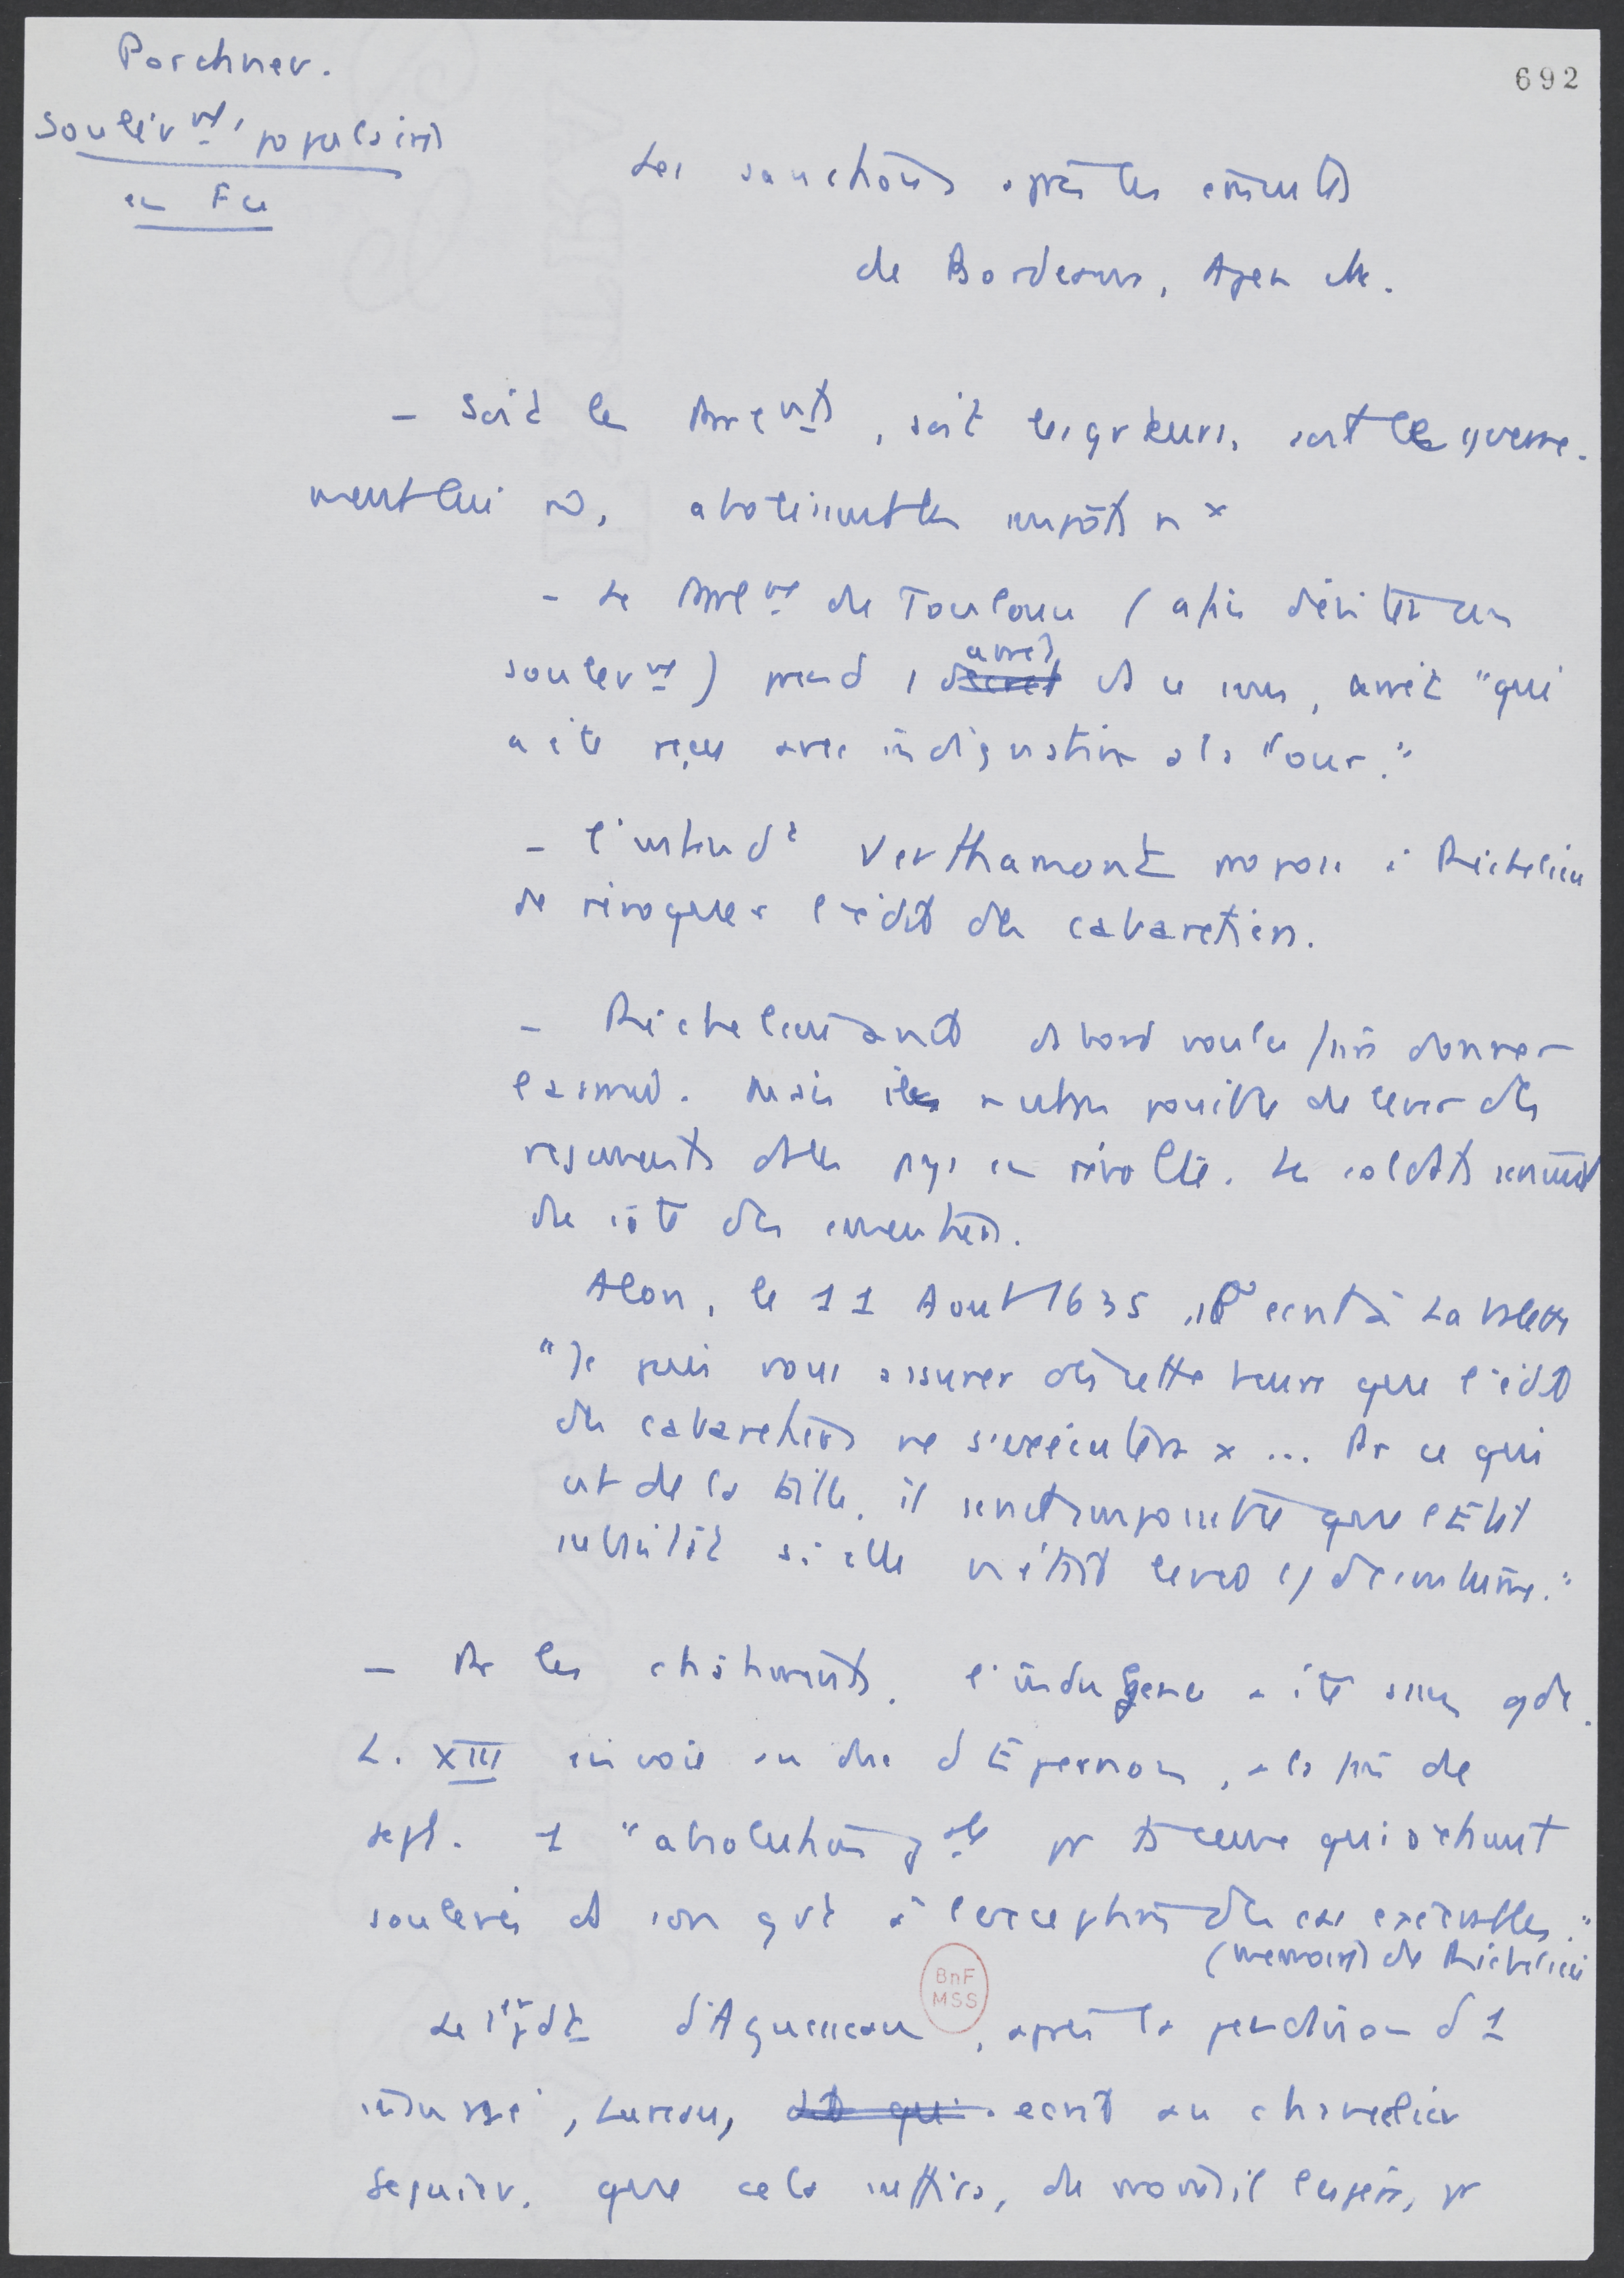 Porchnev.
692
Soulèvmt populaires
en Fce
Les sanctions après les émeutes
de Bordeaux, Agen etc.
- Soit les Parlmts, soit les gvteurs, soit le gouverne-
ment lui m̂, abolissent les impôts nx
- Le Parlmt de Toulouse (afin d'éviter un
soulevmt) prend 1 décret arrêt ds ce sens, arrêt "qui
a été reçu avec indignation à la Cour."
- l'intendt Verthamont propose à Richelieu
de révoquer l'édit des cabaretiers.
- Richelieu avait d'abord voulu faire donner
l'armée. Mais il n'est pas possible de lever des
régiments ds les pays en révolte. Les soldats seraient
du côté des émeutiers.
Alors, le 11 Aout 1635, il écrit à La Valette
"Je puis vous assurer dès cette heure que l'édit
des cabaretiers ne s'exécutera x ... Pr ce qui
est de la taille, il serait impossible que l'Etat
subsistât si elle n'était levée
- Pr les châtiments, l'indulgence a été assez gde.
L. XIII envoie au duc d'Epernon, à la fin de
sept. 1 "absolution gale pr ts ceux qui s'étaient
soulevés ds son gvt à l'exception des cas exécrables."
(mémoires de Richelieu
Le 1er pdt d'Aguesseau, après la pendaison d'1
inculpé, Lureau, écrit au chancelier
Séguier, que cela suffira, du moins il l'espère, pr
BnF
MSS